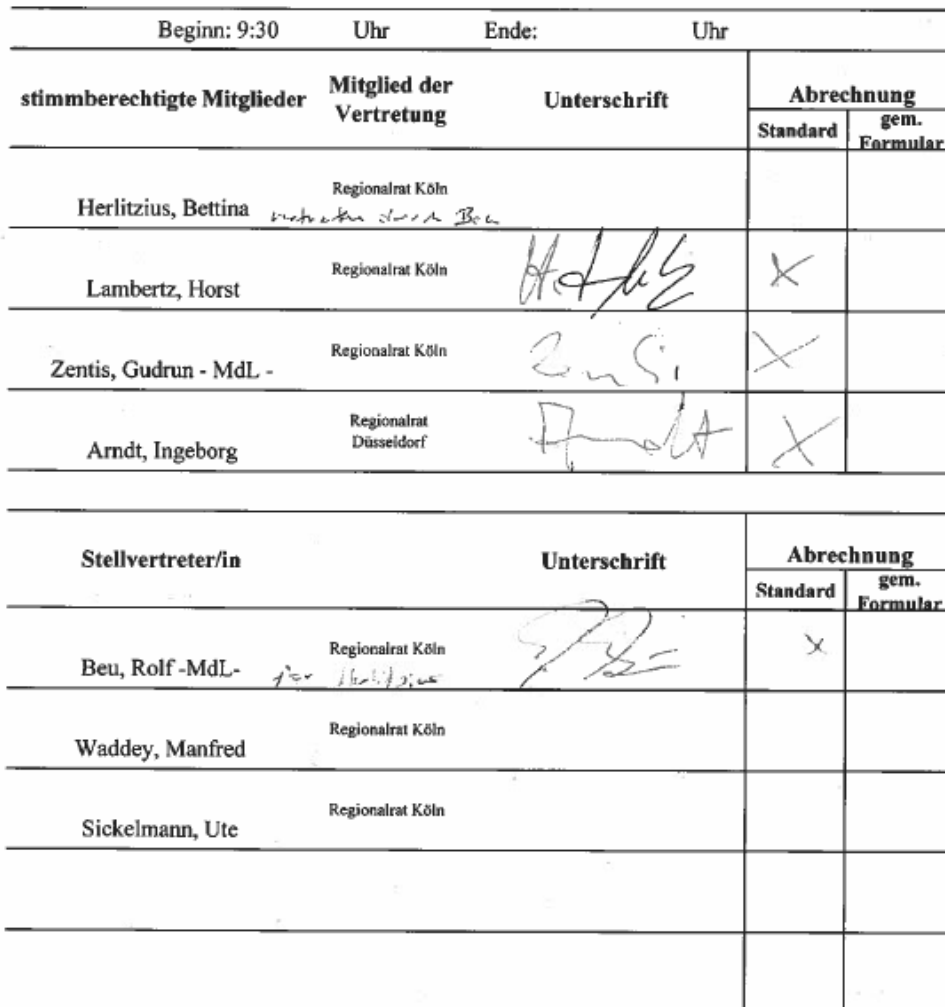 Beginn: 9:30 Uhr Ende: Uhr
stimmberechtigte Mitglieder Mitglied der Vertretung Unterschrift Abrechnung
Standard gem. Formular
Herlitzius, Bettina Regionalrat Köln
vertreten durch Beu
Lambertz, Horst Regionalrat Köln X
Zentis, Gudrun - MdL - Regionalrat Köln Zentis X
Arndt, Ingeborg Regionalrat Düsseldorf Arndt X
Stellvertreter/in Unterschrift Abrechnung
Standard gem. Formular
Beu, Rolf -MdL- Regionalrat Köln x
für Herlitzius
Waddey, Manfred Regionalrat Köln
Sickelmann, Ute Regionalrat Köln